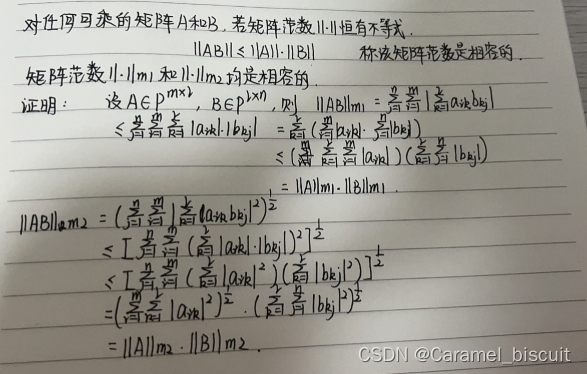 对任何可乘的矩阵A和B,若矩阵范数||·||恒有不等式
||AB|| ≤ ||A||·||B|| 称该矩阵范数是相容的.
矩阵范数||·||m1 和||·||m2 均是相容的.
证明: 设 A∈P^{m×l}, B∈P^{l×n}, 则 ||AB||m1 = ∑_{j=1}^{n} ∑_{i=1}^{m} |∑_{k=1}^{l} a_{ik}b_{kj}|
≤ ∑_{j=1}^{n} ∑_{i=1}^{m} ∑_{k=1}^{l} |a_{ik}|·|b_{kj}| = ∑_{k=1}^{l} (∑_{i=1}^{m} |a_{ik}|·∑_{j=1}^{n} |b_{kj}|)
≤ (∑_{k=1}^{l} ∑_{i=1}^{m} |a_{ik}|)(∑_{k=1}^{l} ∑_{j=1}^{n} |b_{kj}|)
= ||A||m1·||B||m1.
||AB||m2 = (∑_{j=1}^{n} ∑_{i=1}^{m} |∑_{k=1}^{l} a_{ik}b_{kj}|²)^{1/2}
≤ [∑_{j=1}^{n} ∑_{i=1}^{m} (∑_{k=1}^{l} |a_{ik}|·|b_{kj}|)²]^{1/2}
≤ [∑_{j=1}^{n} ∑_{i=1}^{m} (∑_{k=1}^{l} |a_{ik}|²)(∑_{k=1}^{l} |b_{kj}|²)]^{1/2}
= (∑_{i=1}^{m} ∑_{k=1}^{l} |a_{ik}|²)^{1/2}·(∑_{k=1}^{l} ∑_{j=1}^{n} |b_{kj}|²)^{1/2}
= ||A||m2·||B||m2.
CSDN @Caramel_biscuit